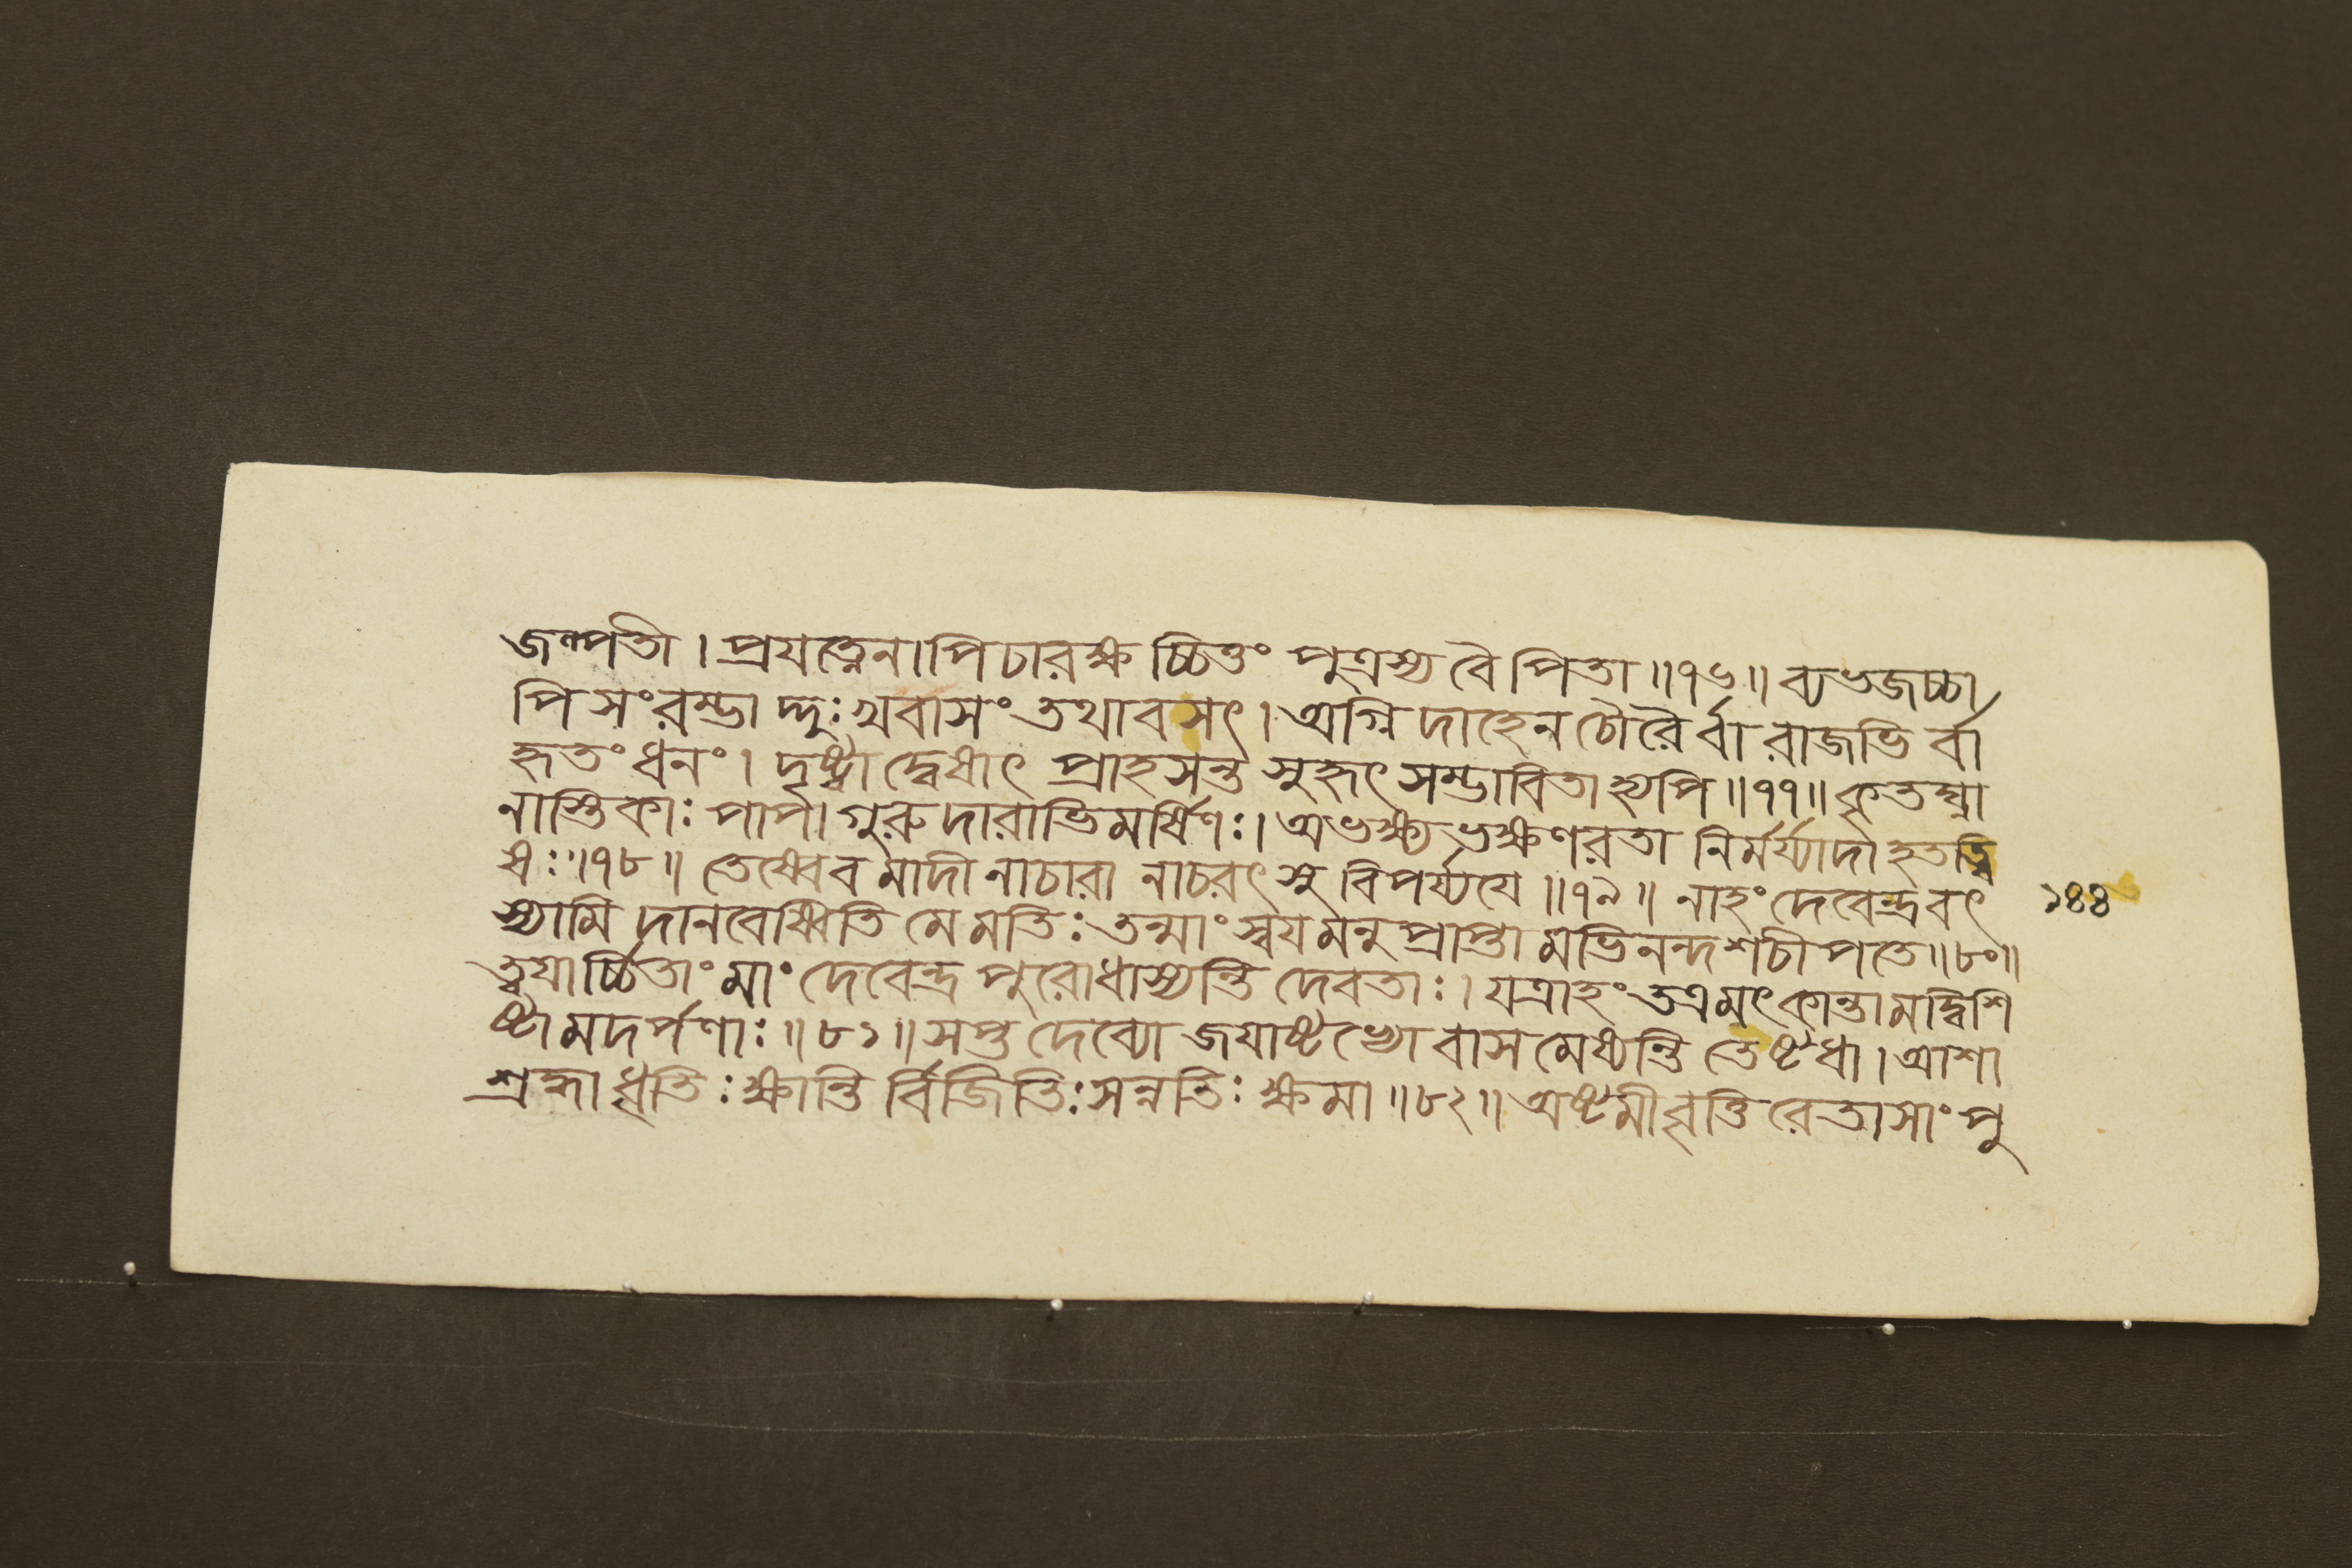 জম্পতী । প্রযত্নেনাপি চারক্ষচ্চিত্তং পুত্রস্য বৈ পিতা ॥৭৬॥ ব্যভজচ্চা
পি সংরম্ভাদ্দুঃখবাসং তথাবসৎ । অগ্নিদাহেন চৌরৈর্ব্বা রাজভির্ব্বা
হৃতং ধনং । দৃষ্ট্বা দ্বেষাৎ প্রাহসন্ত সুহৃৎসম্ভাবিতাহ্যপি ॥৭৭॥ কৃতঘ্না
নাস্তিকাঃ পাপা গুরুদারাভিমর্ষিণঃ । অভক্ষ্যভক্ষণরতা নির্মর্য্যাদা হতত্বি
ষঃ ॥৭৮॥ তেষ্বেবমাদীনাচারানাচরৎসু বিপর্য্যযে ॥৭৯॥ নাহং দেবেন্দ্র বৎ
১৪৪
স্যামি দানবেষ্বিতি মে মতিঃ তন্মাং স্বযমনুপ্রাপ্তামভিনন্দ শচীপতে ॥৮০॥
ত্বযার্চ্চিতাং মাং দেবেন্দ্র পুরোধাস্যন্তি দেবতাঃ । যত্রাহং তত্র মৎকান্তা মদ্বিশি
ষ্টা মদর্পণাঃ ॥৮১॥ সপ্ত দেব্যো জযাষ্টম্যো বাসমেষ্যন্তি তেষ্টধা । আশা
শ্রদ্ধা ধৃতিঃ ক্ষান্তির্ব্বিজিতিঃ সন্নতিঃ ক্ষমা ॥৮২॥ অষ্টমী বৃত্তিরেতাসাং পু